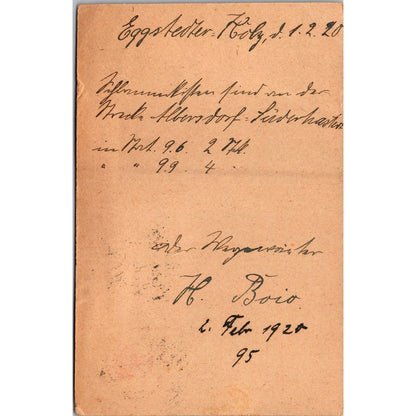 Eggstedter-Holz, d. 1.2.20
Schlammkisten sind an der
Strecke Albersdorf-Süderhastedt
in Stat. 9.6 2 Stk.
" " 9.9 4 "
der Wegewärter
H. Boio
2. Feb 1920
95